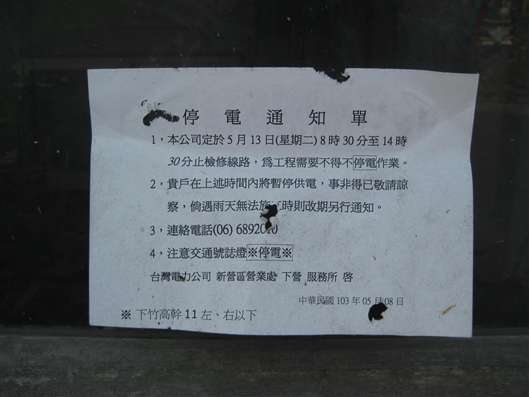 停電通知單
1，本公司定於5月13日(星期二)8時30分至14時
30分止檢修線路，為工程需要不得不停電作業。
2，貴戶在上述時間內將暫停供電，事非得已敬請諒
察，倘遇雨天無法施 時則改期另行通知。
3，連絡電話(06) 68920
4，注意交通號誌燈※停電※
台灣電力公司 新營區營業處 下營 服務所 啓
中華民國 103 年 05 月 08 日
※ 下竹高幹 11 左、右以下